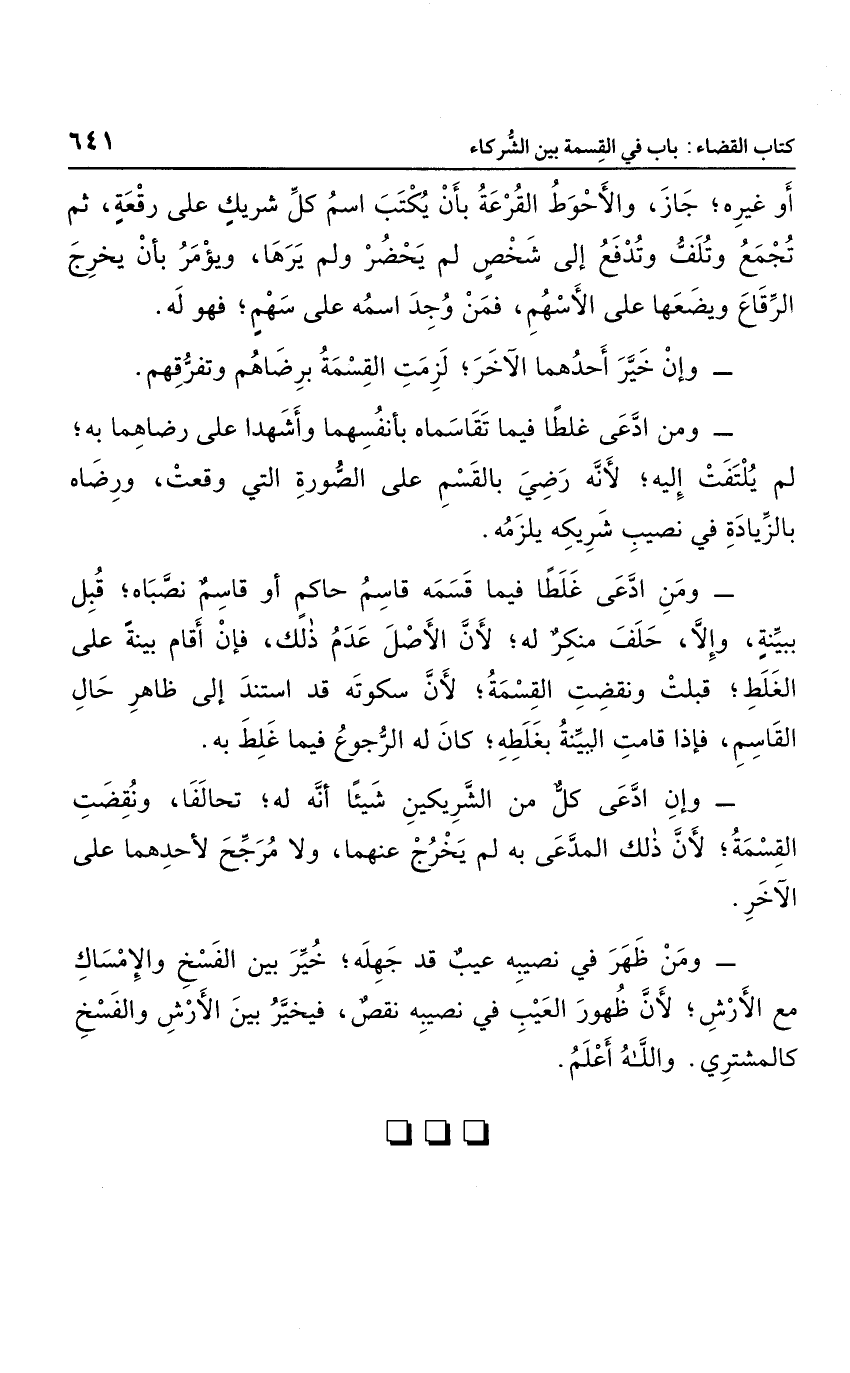 كتاب القضاء: باب في القِسمة بين الشُّركاء ٦٤١
أَو غيرِه؛ جَازَ، والأَحْوَطُ القُرْعَةُ بأَنْ يُكْتَبَ اسمُ كلِّ شريكٍ على رقْعَةٍ، ثم
تُجْمَعُ وتُلَفُّ وتُدْفَعُ إلى شَخْصٍ لم يَحْضُرْ ولم يَرَهَا، ويؤْمَرُ بأنْ يخرِجَ
الرِّقَاعَ ويضَعَها على الأَسْهُمِ، فمَنْ وُجِدَ اسمُه على سَهْمٍ؛ فهو لَه.
ــ وإنْ خَيَّرَ أَحدُهما الآخَرَ؛ لَزِمَتِ القِسْمَةُ برِضَاهُم وتفرُّقِهم.
ــ ومن ادَّعَى غلطًا فيما تَقَاسَماه بأنفُسِهما وأَشَهدا على رضاهِما به؛
لم يُلْتَفَتْ إِليه؛ لأَنَّه رَضِيَ بالقَسْمِ على الصُّورةِ التي وقعتْ، ورِضَاه
بالزِّيادَةِ في نصيبِ شَرِيكِه يلزَمُه.
ــ ومَنِ ادَّعَى غَلَطًا فيما قَسَمَه قاسِمُ حاكمٍ أو قاسِمٌ نصَّبَاه؛ قُبِل
ببيِّنةٍ، وإِلاَّ، حَلَفَ منكِرٌ له؛ لأَنَّ الأَصْلَ عَدَمُ ذٰلك، فإنْ أَقام بينةً على
الغَلَطِ؛ قبلتْ ونقضتِ القِسْمَةُ؛ لأَنَّ سكوتَه قد استندَ إلى ظاهرِ حَالِ
القَاسِمِ، فإذا قامتِ البيِّنةُ بغَلَطِه؛ كانَ له الرُّجوعُ فيما غَلِطَ به.
ــ وإنِ ادَّعَى كلٌّ من الشَّرِيكينِ شَيئًا أنَّه له؛ تحالَفَا، ونُقِضَتِ
القِسْمَةُ؛ لأَنَّ ذٰلك المدَّعَى به لم يَخْرُجْ عنهما، ولا مُرَجِّحَ لأحدِهما على
الآخَرِ.
ــ ومَنْ ظَهَرَ في نصيبِه عيبٌ قد جَهِلَه؛ خُيِّرَ بين الفَسْخِ والإِمْسَاكِ
مع الأَرْشِ؛ لأَنَّ ظُهورَ العَيْبِ في نصيبِه نقصٌ، فيخيَّرُ بينَ الأَرْشِ والفَسْخِ
كالمشترِي. واللَّهُ أَعْلَمُ.